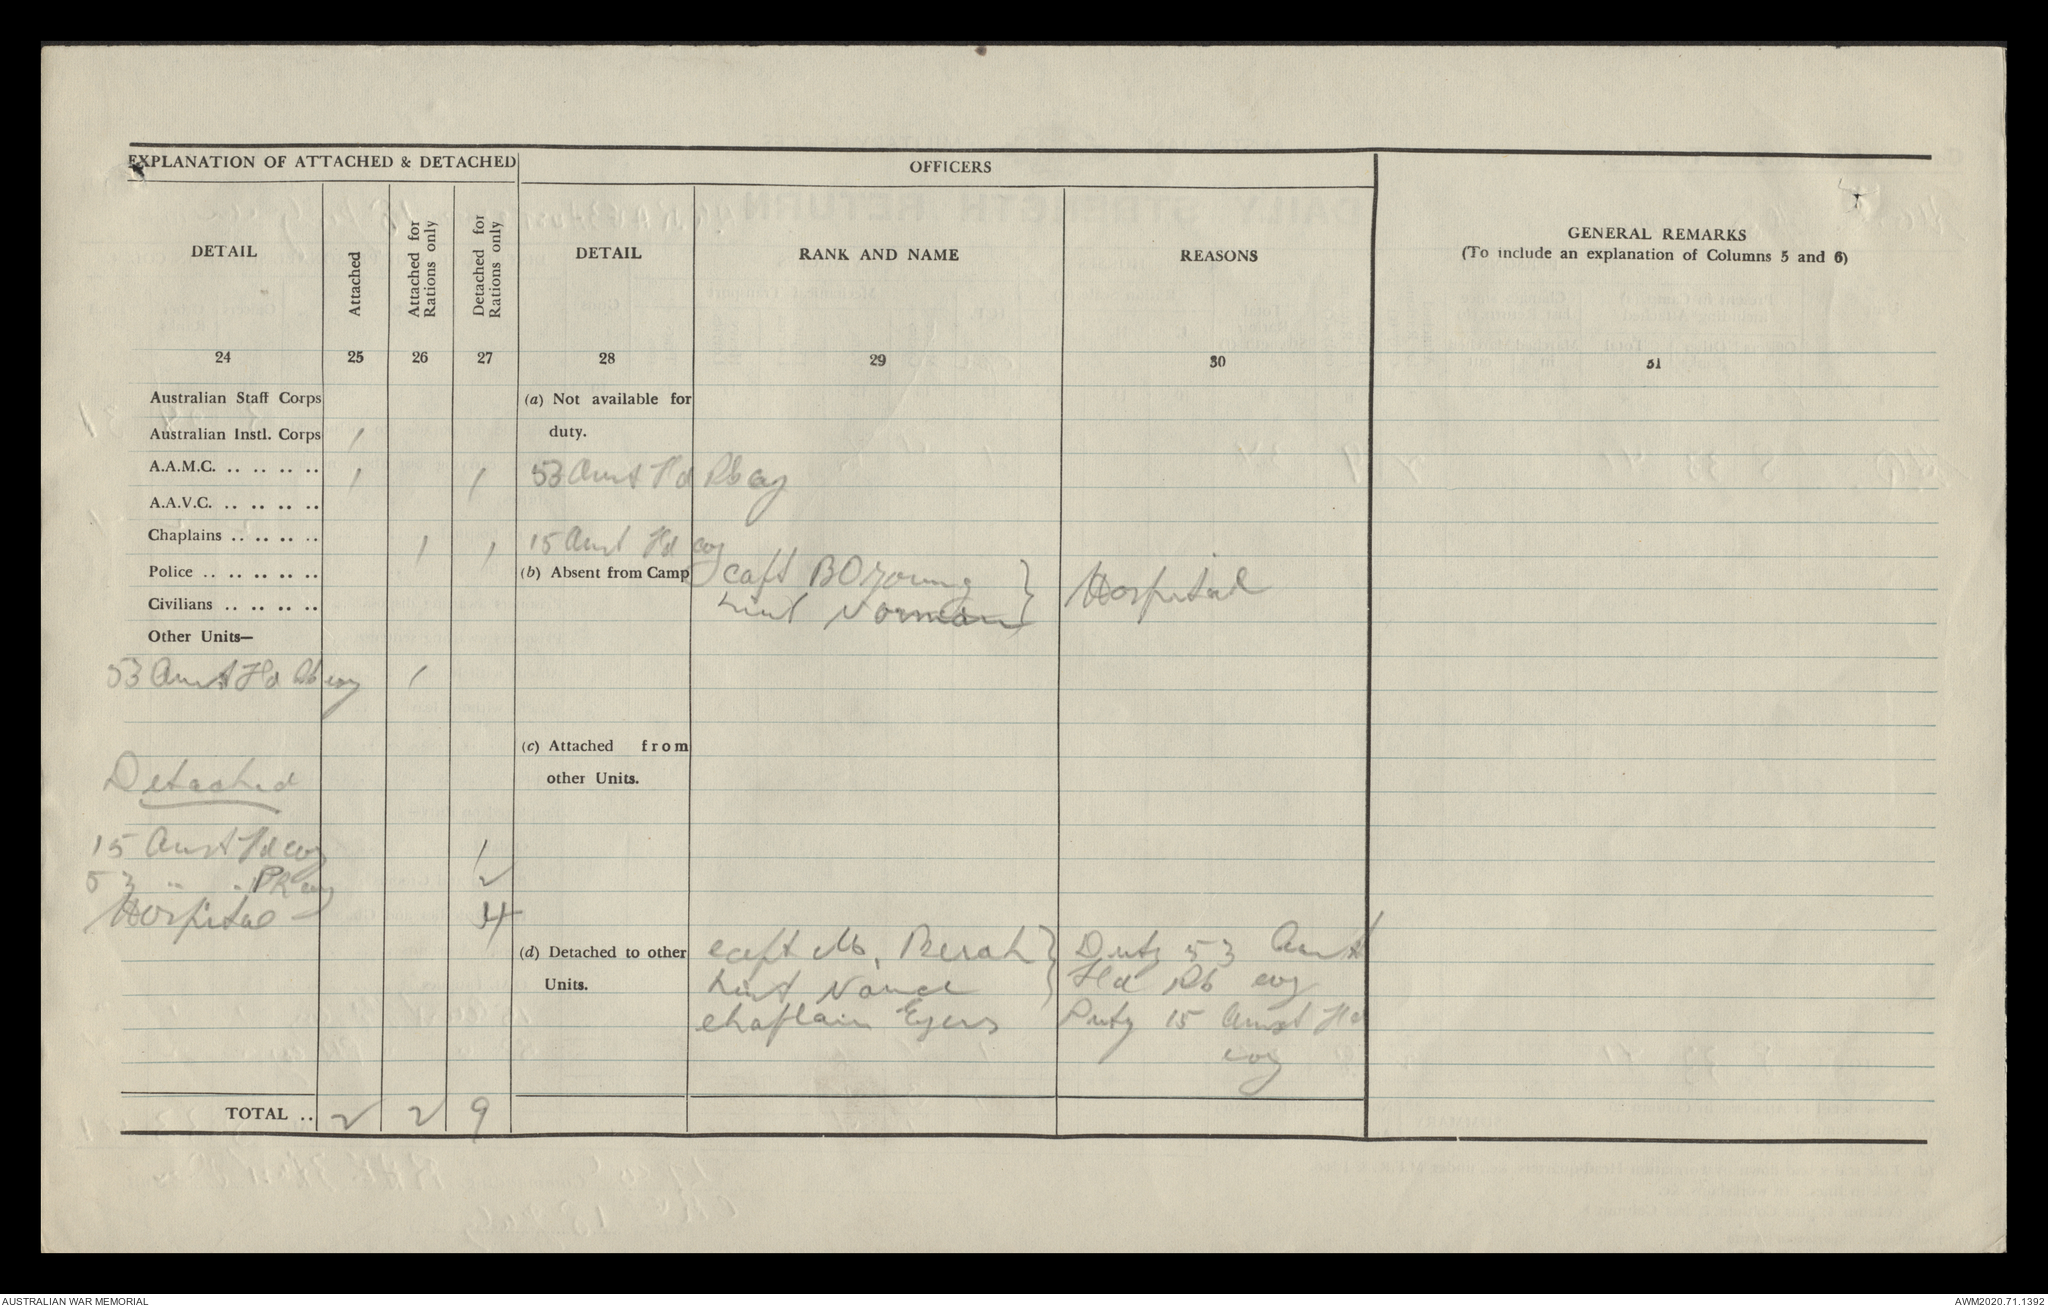 EXPLANATION OF ATTACHED & DETACHED
OFFICERS
DETAIL
Attached
Attached for Rations only
Detached for Rations only
DETAIL
RANK AND NAME
REASONS
GENERAL REMARKS
(To include an explanation of Columns 5 and 6)
24 25 26 27 28 29 30 31
Australian Staff Corps
(a) Not available for
duty.
Australian Instl. Corps 1
A.A.M.C. .. .. .. .. 1 1
53 Aust Fd Pk coy
A.A.V.C. .. .. .. ..
Chaplains .. .. .. .. 1 1
15 Aust Fd coy
Police .. .. .. .. ..
(b) Absent from Camp Capt B O Young } Hospital
Civilians .. .. .. .. Lieut Norman
Other Units—
53 Aust Fd Pk coy 1
(c) Attached from
other Units.
Detached
15 Aust Fd coy 1
53 " " Pk coy 2
Hospital 4
(d) Detached to other
Units.
Capt M. Berah } Duty 53 Aust
Lieut Fd Pk coy
Chaplain Eyers Duty 15 Aust Fd
coy
TOTAL .. 2 2 9
AUSTRALIAN WAR MEMORIAL
AWM2020.71.1392